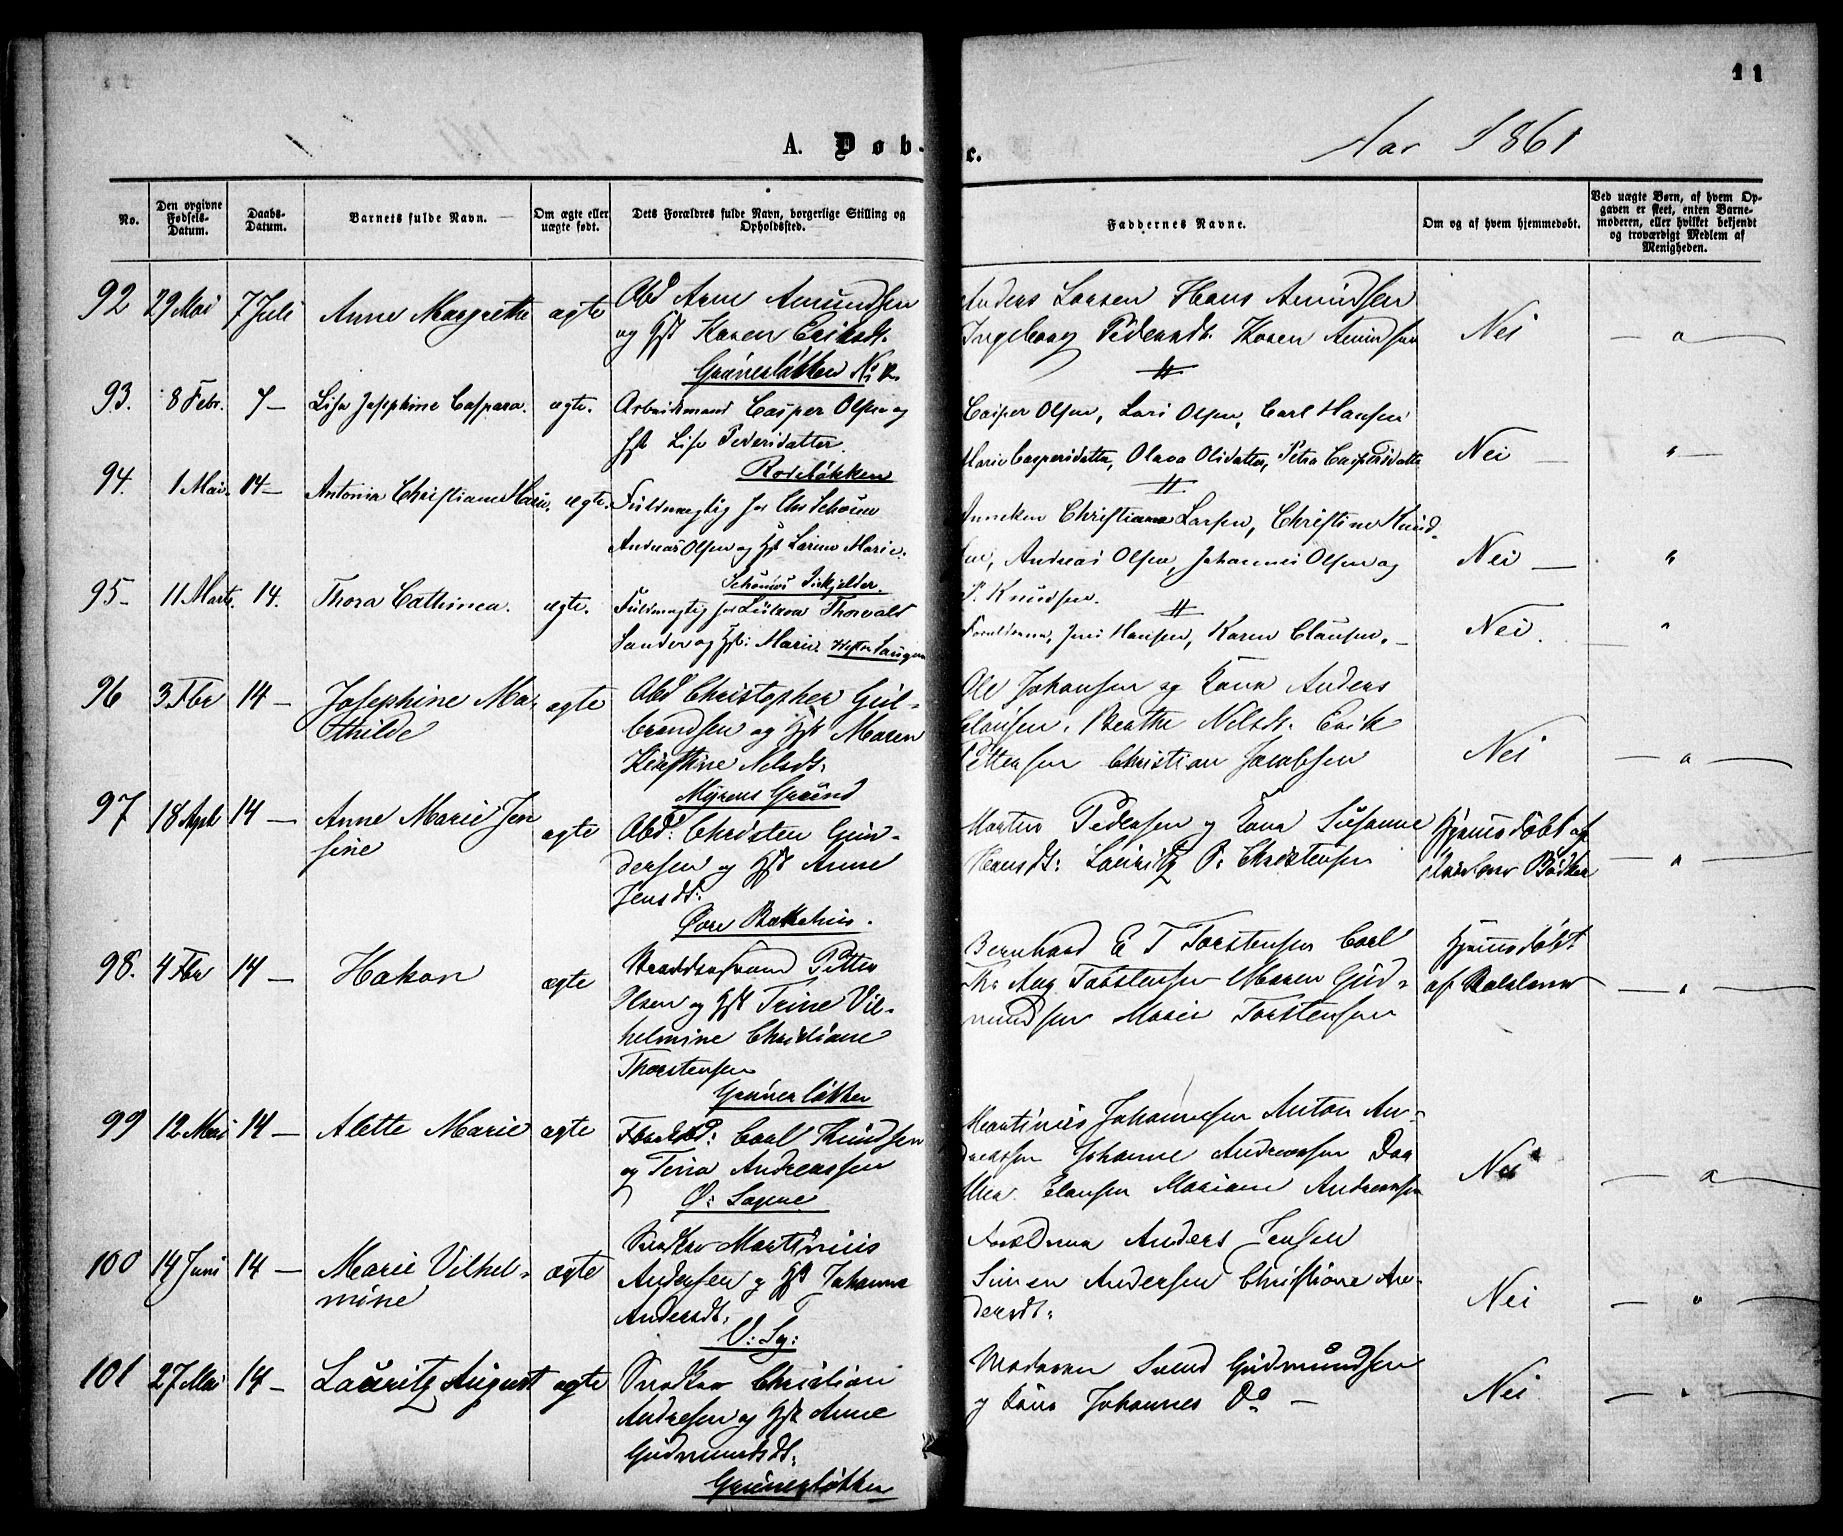 11
A. Døb-
e.
Aar 1861
No.
Den opgivne Fødsels-Datum.
Daabs-Datum.
Barnets fulde Navn.
Om ægte eller uægte født.
Dets Forældres fulde Navn, borgerlige Stilling og Opholdssted.
Faddernes Navne.
Om og af hvem hjemmedøbt.
Ved uægte Børn, af hvem Opgaven er skeet, enten Barnemoderen, eller hvilket bekjendt og troværdigt Medlem af Menigheden.
92 29 Mai 7 Juli Anne Margrethe ægte Abd Arne Amundsen
og Hst Karen Eriksdt.
Grünerløkken
Anders Larsen Hans Amundsen
Ingeborg Pedersdt. Karen Amundsen
Nei
93. 8 Febr. 7 — Lise Josephine Caspara. ægte. Arbeidsmand Casper Olsen og
Hst Lise Pedersdatter.
Rodeløkken
Casper Olsen, Lars Olsen, Carl Hansen
Marie Caspersdatter, Olava Olsdatter, Petra Caspersdatter
Nei —
94. 1 Mai. 14 — Antonia Christiane Marie. ægte. Fuldmægtig
Andreas Olsen og Hst Larine Marie.
Anneken Christiane Larsen, Christine Knud-
sen, Andreas Olsen, Johannes Olsen og
P. Knudsen.
Nei —
95 — 11 Marts. 14. Thora Cathinca. ægte. Fuldmægtig Thorvald
Sander og Hst: Marie.
Forældrene, Jens Hansen, Karen Clausen. —
Nei.
96 3 Fbr 14 — Josephine Ma-
thilde
ægte Abd Christopher Gul-
brandsen og Hst Maren
Kirstine Nelsdt:
Myrens Grund
Ole Johansen og Kona Anders
Clausen. Berthe Nelsdt. Erik
Pettersen Christian Jacobsen
Nei
97 18 April 14 — Anne Marie Jen
sine
ægte Abd: Christen Gun-
dersen og Hst Anne
Jensdt:
Øvre Bakkehus.
Morten Pedersen og Kona Susanne
Hansdt: Lauritz P. Christensen
Hjemmedøbt af
98. 4 Fbr 14 — Hakon ægte Petter
Olsen og Hst Trine Vil-
helmine Christiane
Thorstensen
Grünerløkken
Bernhard E T Torstensen Carl
Aug Torstensen Maren Gud-
mundsen Marie Torstensen
Hjemmedøbt
af
99 12 Mai 14 — Alette Marie ægte Carl Knudsen
og Trina Andreassen
Ø: Sagene
Martinius Johannesen Anton An-
dreassen Johanne Andreassen
Clausen Mariane Andreassen
Nei
100 14 Juni 14 — Marie Vilhel-
mine
ægte Snedker Martinius
Andersen og Hst Johanne
Andersdt:
V: Sg:
Forældrene Anders Jensen
Simen Andersen Christiane An-
dersdt:
Nei
101 27 Mai 14 — Lauritz August ægte Snedker Christian
Andresen og Hst Anne
Gudmundsdt:
Grünerløkken
Svend Gudmundsen
og Kona Johannes Do —
Nei